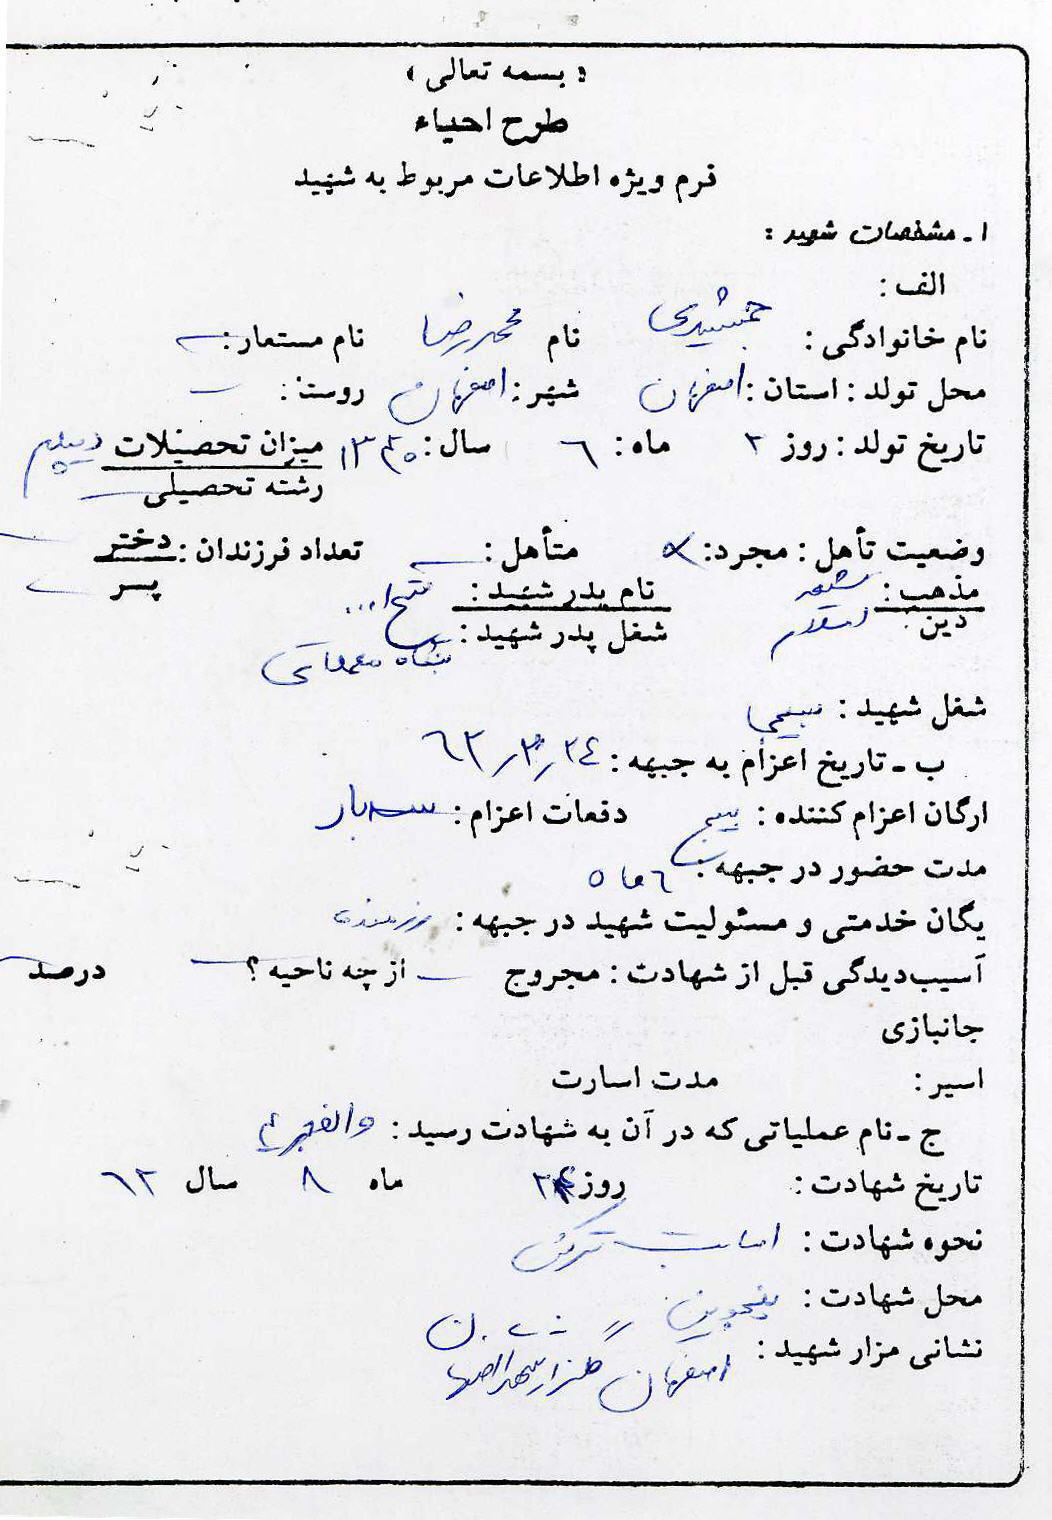 « بسمه تعالی »
طرح احیاء
فرم ویژه اطلاعات مربوط به شهید
۱ ـ مشخصات شهید :
الف :
نام خانوادگی : جمشیدی نام محمدرضا نام مستعار : ـ
محل تولد : استان : اصفهان شهر : اصفهان روستا : ـ
تاریخ تولد : روز ۲ ماه : ۶ سال : ۱۳۴۵ میزان تحصیلات دیپلم
رشته تحصیلی ـ
وضعیت تأهل : مجرد : × متأهل : ـ تعداد فرزندان : دختر ـ
پسر ـ
مذهب : شیعه نام پدر شهید : فتح ا...
دین : اسلام شغل پدر شهید :
شغل شهید : بسیجی
ب ـ تاریخ اعزام به جبهه : ۲۴ / ۳ / ۶۲
ارگان اعزام کننده : بسیج دفعات اعزام : سه بار
مدت حضور در جبهه : ۶ ماه
یگان خدمتی و مسئولیت شهید در جبهه : رزمنده
آسیب‌دیدگی قبل از شهادت : مجروح ـ از چه ناحیه ؟ ـ درصد
جانبازی
اسیر : مدت اسارت
ج ـ نام عملیاتی که در آن به شهادت رسید : والفجر ۴
تاریخ شهادت : روز ماه ۸ سال ۶۲
نحوه شهادت : اصابت ترکش
محل شهادت : پنجوین
نشانی مزار شهید : اصفهان گلزار شهدا